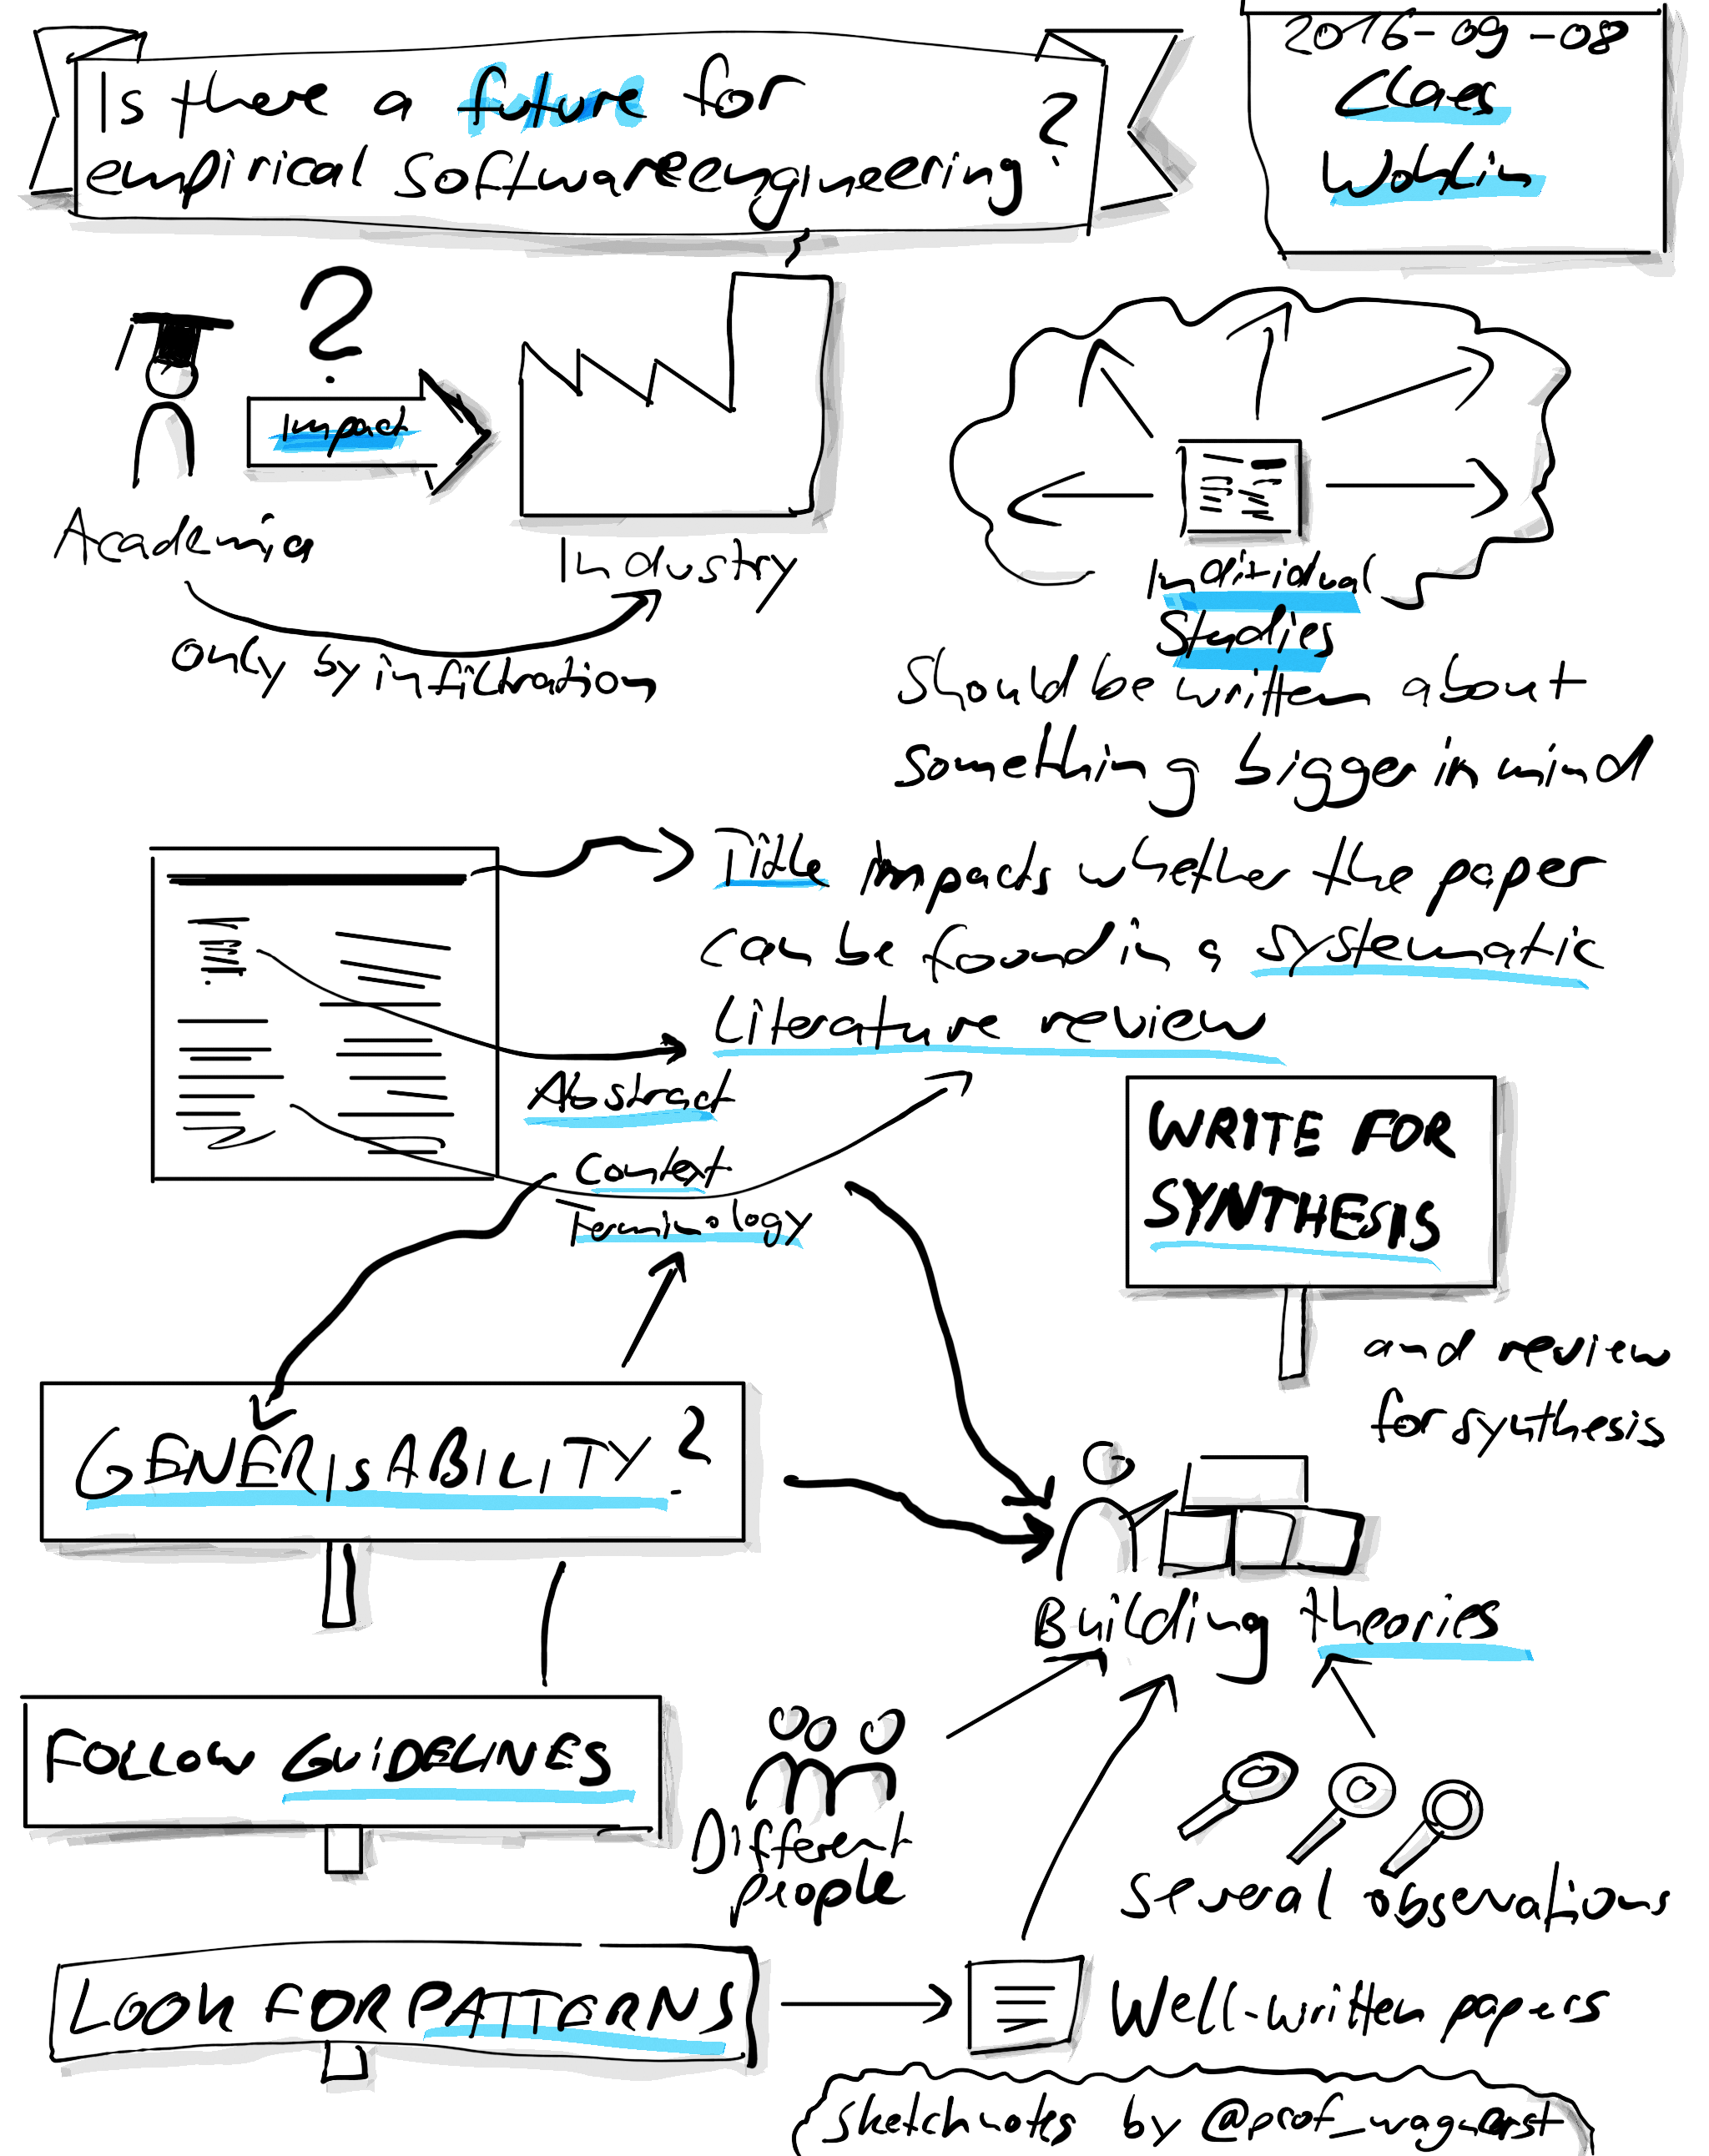 Is there a future for
empirical softwareengineering?
2016-09-08
Claes
Wohlin
?
Impact
Academia
Industry
only by infiltration
Individual
Studies
should be written about
something bigger in mind
Title impacts whether the paper
can be found in a systematic
literature review
Abstract
Context
Terminology
WRITE FOR
SYNTHESIS
and review
for synthesis
GENERISABILITY?
Building theories
FOLLOW GUIDELINES
Different
people
several observations
LOOK FOR PATTERNS
Well-written papers
Sketchnotes by @prof_wagnerst